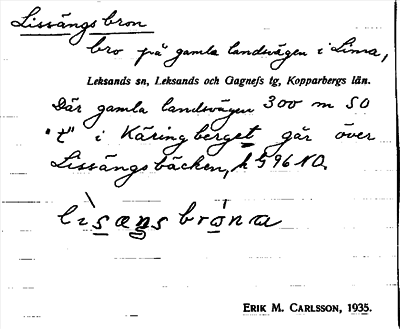 Lissängsbron
bro på gamla landsvägen i Lima,
Leksands sn, Leksands och Gagnefs tg, Kopparbergs län.
Där gamla landsvägen 300 m SO
"t" i Käringberget går över
Lissängsbäcken, k 596 NO.
lìsæŋsbróna
ERIK M. CARLSSON, 1935.